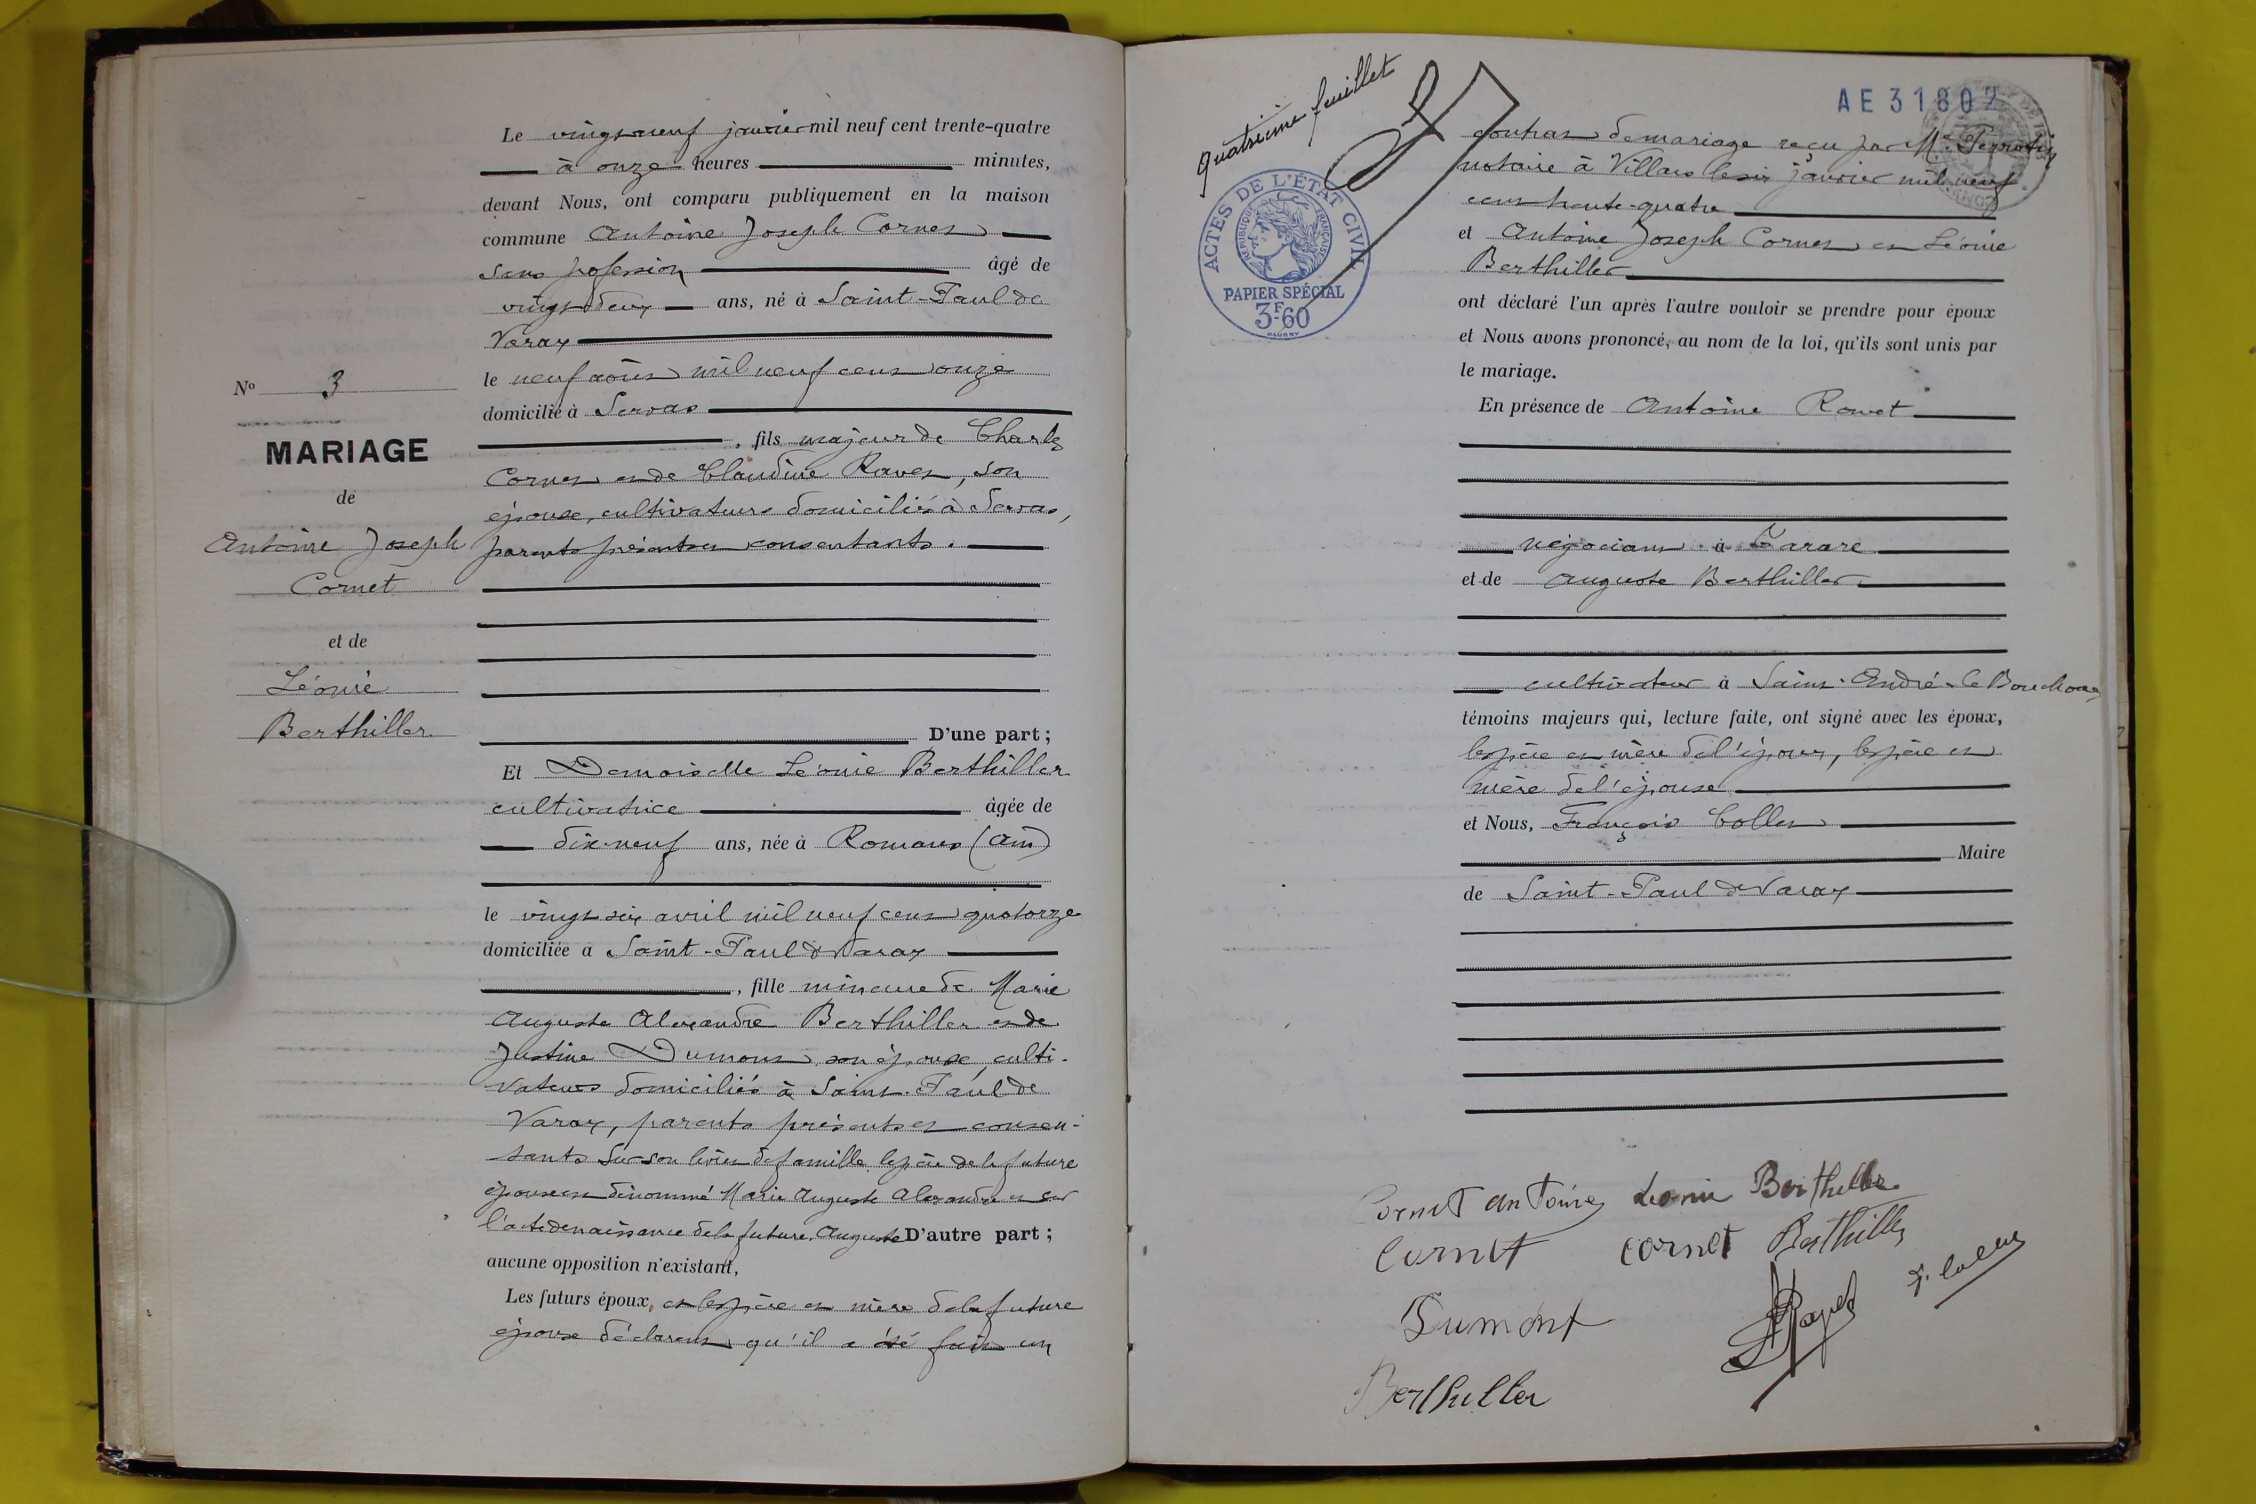 Le vingt neuf janvier mil neuf cent trente-quatre
à onze heures minutes,
devant Nous, ont comparu publiquement en la maison
commune Antoine Joseph Cornet
sans profession âgé de
vingt deux ans, né à Saint-Paul de
Varax
le neuf août mil neuf cent onze
domicilié à Servas
, fils majeur de Charles
Cornet et de Claudine Ravet, son
épouse, cultivateurs domiciliés à Servas,
parents présents et consentants.
D'une part;
N° 3
MARIAGE
de
Antoine Joseph
Cornet
et de
Léonie
Berthiller
Et Demoiselle Léonie Berthiller
cultivatrice âgée de
dix-neuf ans, née à Romans (Ain)
le vingt six avril mil neuf cent quatorze
domiciliée à Saint-Paul de Varax
, fille mineure de Marie
Auguste Alexandre Berthiller et de
Justine Dumont son épouse, culti-
vateurs domiciliés à Saint-Paul de
Varax, parents présents et consen-
tants Sur son livret de famille le père de la future
épouse est dénommé Marie Auguste Alexandre et sur
l'acte de naissance de la future, Auguste D'autre part;
aucune opposition n'existant,
Les futurs époux, et les père et mère de la future
épouse déclarent qu'il a été fait un
Quatrième feuillet
AE 31802
ACTES DE L'ÉTAT CIVIL
RÉPUBLIQUE FRANÇAISE
PAPIER SPÉCIAL
3F.60
contrat de mariage reçu par Me Perrotin
notaire à Villars le six janvier mil neuf
cent trente-quatre
et Antoine Joseph Cornet et Léonie
Berthiller
ont déclaré l'un après l'autre vouloir se prendre pour époux
et Nous avons prononcé, au nom de la loi, qu'ils sont unis par
le mariage.
En présence de Antoine
négociant à Tarare
et de Auguste Berthiller
cultivateur à Saint-André-le-Bouchoux
témoins majeurs qui, lecture faite, ont signé avec les époux,
les père et mère de l'époux, les père et
mère de l'épouse
et Nous, François Collet
Maire
de Saint-Paul de Varax
Cornet Antoine Léonie Berthiller
Cornet Cornet Berthiller
Dumont
Berthiller